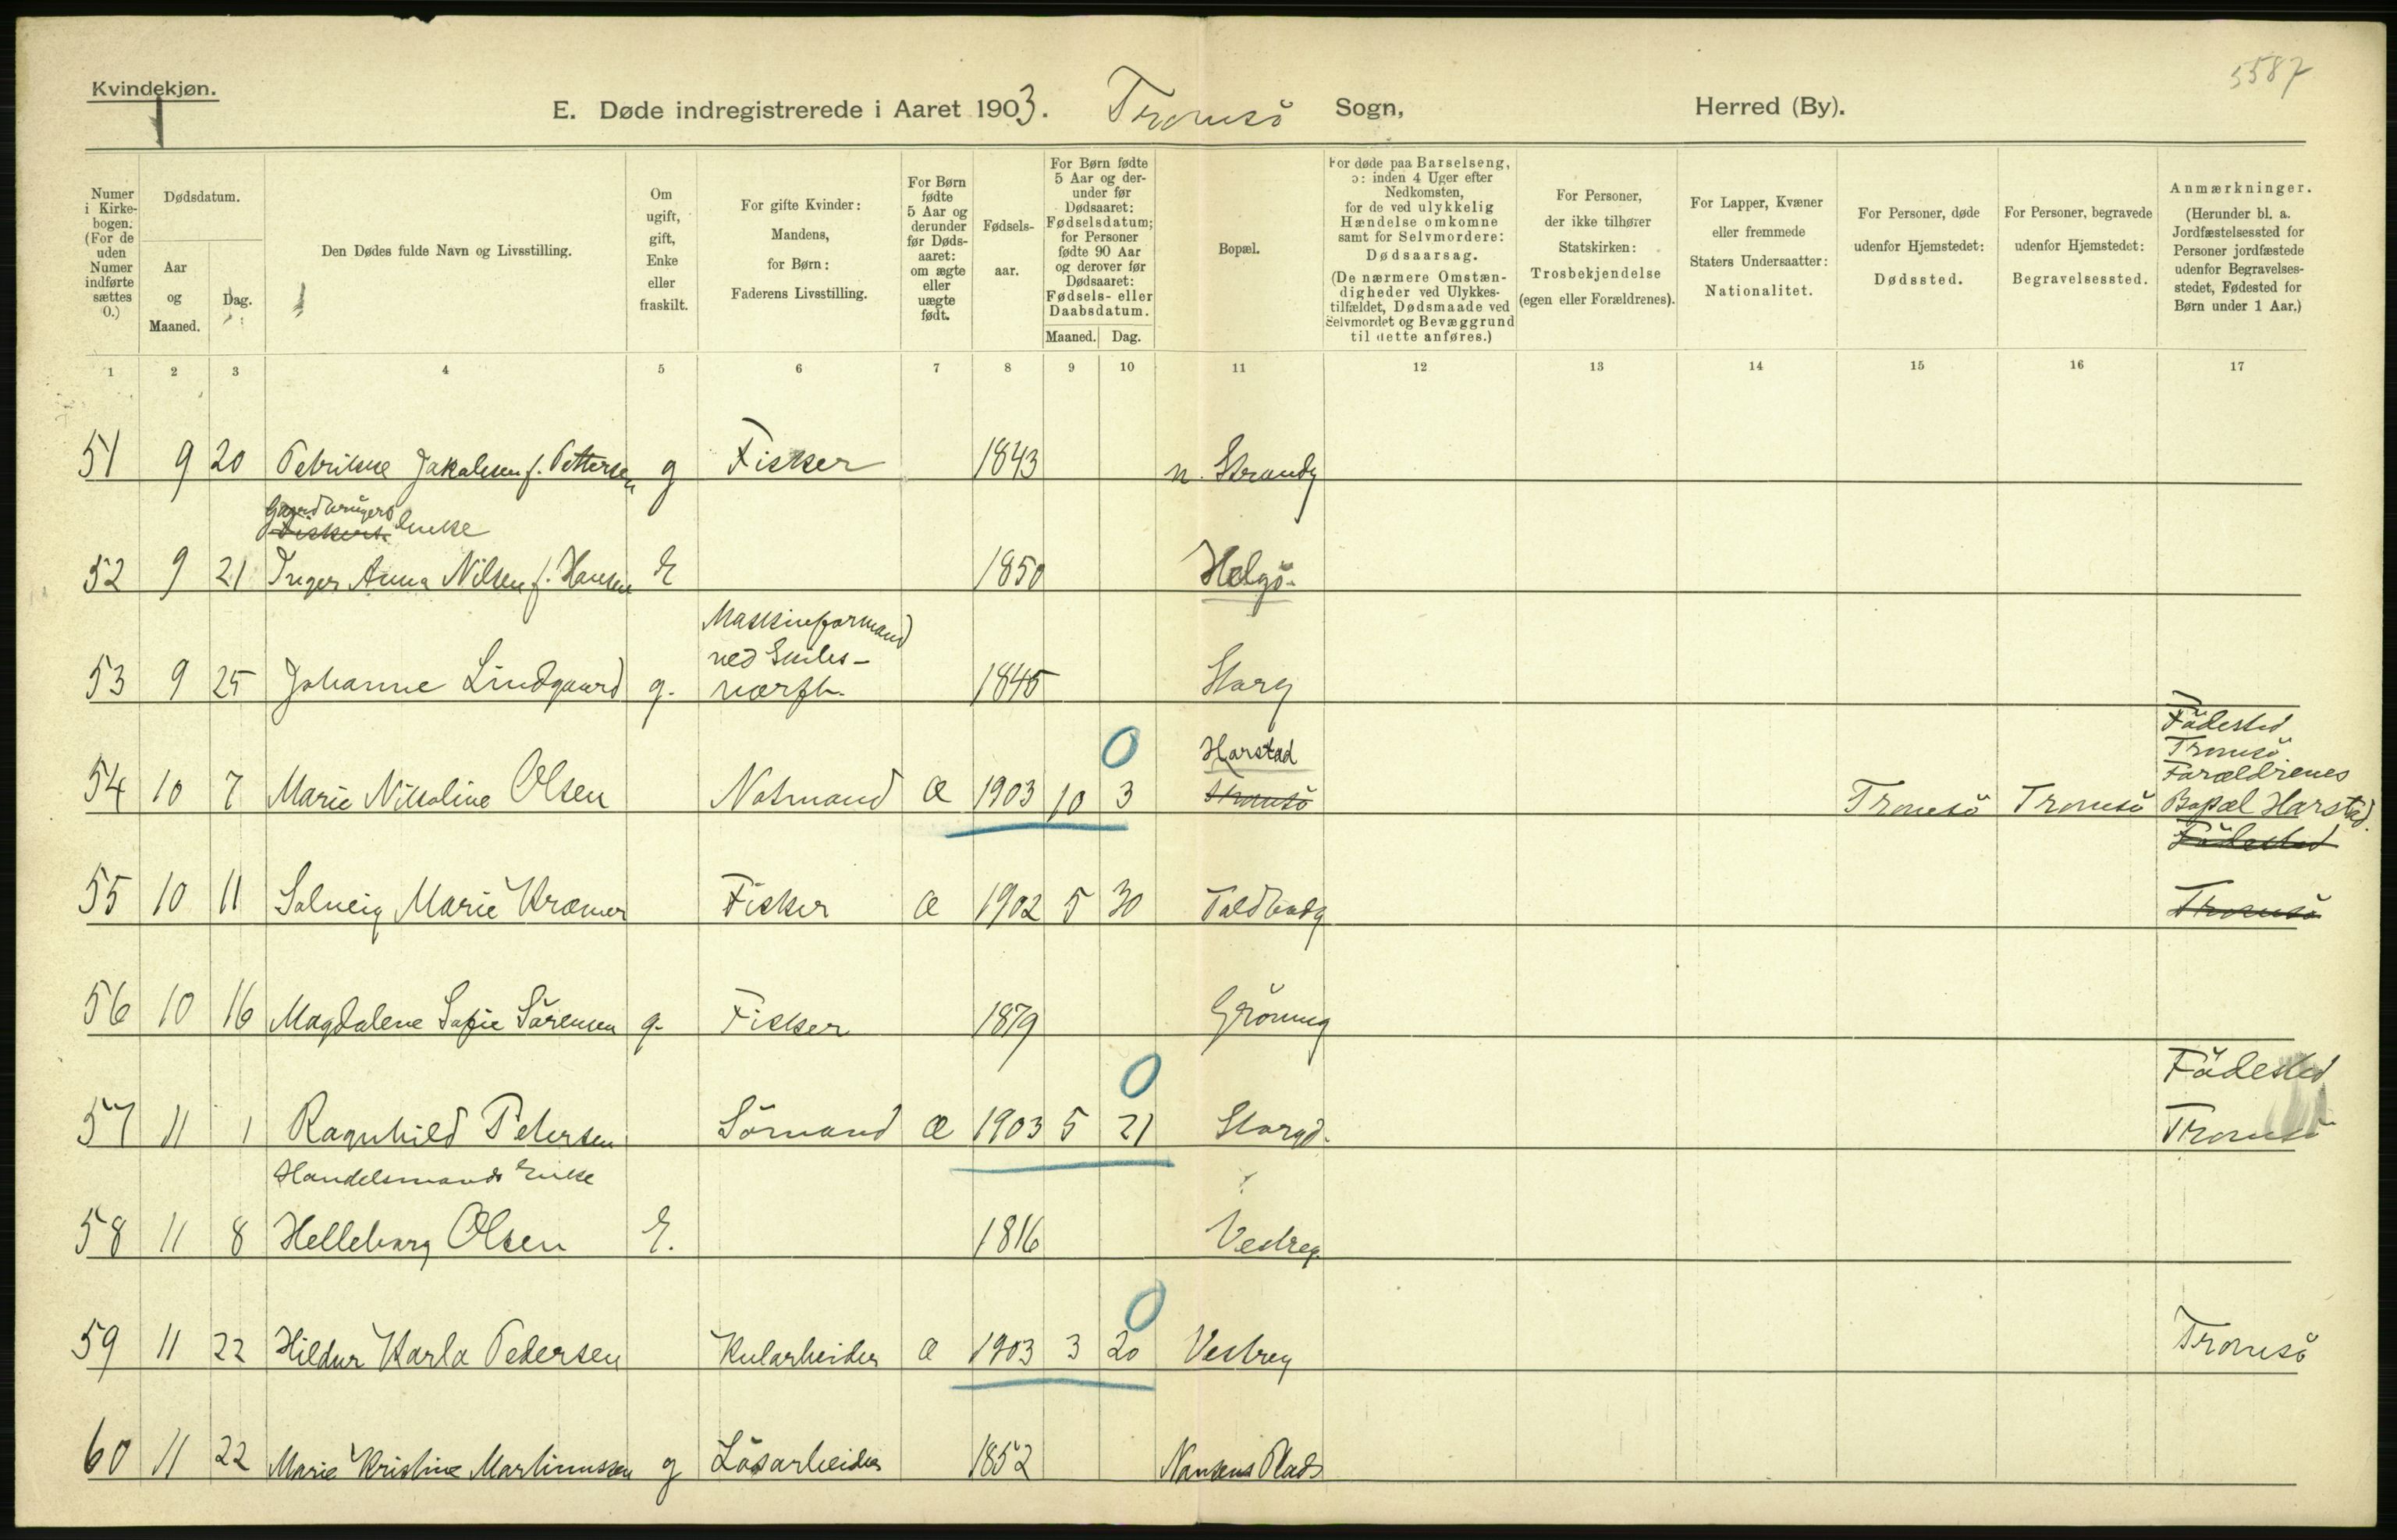 Kvindekjøn.
5587
E. Døde indregistrerede i Aaret 1903. Tromsö Sogn, Herred (By).
Numer i Kirkebogen. (For de uden Numer indførte sættes 0.)
Dødsdatum.
Aar og Maaned.
Dag.
Den Dødes fulde Navn og Livsstilling.
Om ugift, gift, Enke eller fraskilt.
For gifte Kvinder: Mandens, for Børn: Faderens Livsstilling.
For Børn fødte 5 Aar og derunder før Dødsaaret: om ægte eller uægte født.
Fødselsaar.
For Børn fødte 5 Aar og derunder før Dødsaaret: Fødselsdatum; for Personer fødte 90 Aar og derover før Dødsaaret: Fødsels- eller Daabsdatum.
Maaned. Dag.
Bopæl.
For døde paa Barselseng, ɔ: inden 4 Uger efter Nedkomsten, for de ved ulykkelig Hændelse omkomne samt for Selvmordere: Dødsaarsag. (De nærmere Omstændigheder ved Ulykkestilfældet, Dødsmaade ved Selvmordet og Bevæggrund til dette anføres.)
For Personer, der ikke tilhører Statskirken: Trosbekjendelse (egen eller Forældrenes).
For Lapper, Kvæner eller fremmede Staters Undersaatter: Nationalitet.
For Personer, døde udenfor Hjemstedet: Dødssted.
For Personer, begravede udenfor Hjemstedet: Begravelsessted.
Anmærkninger. (Herunder bl. a. Jordfæstelsessted for Personer jordfæstede udenfor Begravelsesstedet, Fødested for Børn under 1 Aar.)
1 2 3 4 5 6 7 8 9 10 11 12 13 14 15 16 17
51 9 20 Petrikke Jakobsen f. Pettersen g Fisker 1843 n. Strandg
Gaardbrugers Fiskers Enke
52 9 21 Inger Anna Nilsen f. Hansen E 1850 Helgö.
Maskinformand
ved Skibs-
53 9 25 Johanne Lindgaard g. værft. 1845 Storg
Födested
Harstad Tromsö
Forældrenes
54 10 7 Marie Nikoline Olsen Notmand Æ 1903 10 3 Tromsö Tromsö Tromsö Bopæl Harstad.
0
Födested
55 10 11 Solveig Marie Kræmer Fisker æ 1902 5 30 Toldbodg Tromsö
56 10 16 Magdalene Sofie Sörensen g. Fisker 1879 Grönneg
0 Födested
57 11 1 Ragnhild Petersen Sömand Æ 1903 5 21 Storgd. Tromsö
Handelsmands Enke
58 11 8 Helleborg Olsen E. 1816 Vestreg.
0
59 11 22 Hildur Karla Pedersen Kularbeider æ 1903 3 20 Vestreg Tromsö
60 11 22 Marie Kristine Martinussen g Lösarbeider 1852 Nansens Plads